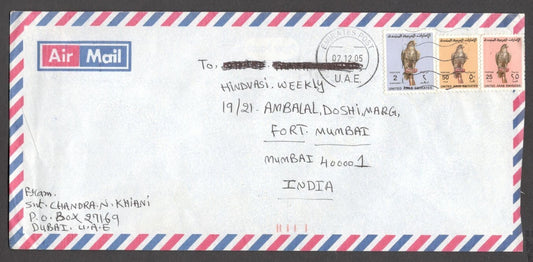 Air Mail
EMIRATES POST
07.12.05
U.A.E.
2 ٢
UNITED ARAB EMIRATES
50 ٥٠
UNITED ARAB EMIRATES
25 ٢٥
UNITED ARAB EMIRATES
To.
HINDVASI. WEEKLY
19/21. AMBALAL, DOSHI, MARG,
FORT. MUMBAI
MUMBAI 400001
INDIA
From.
Smt. CHANDRA. N. KHIANI
P.O. BOX 27169
DUBAI. U.A.E